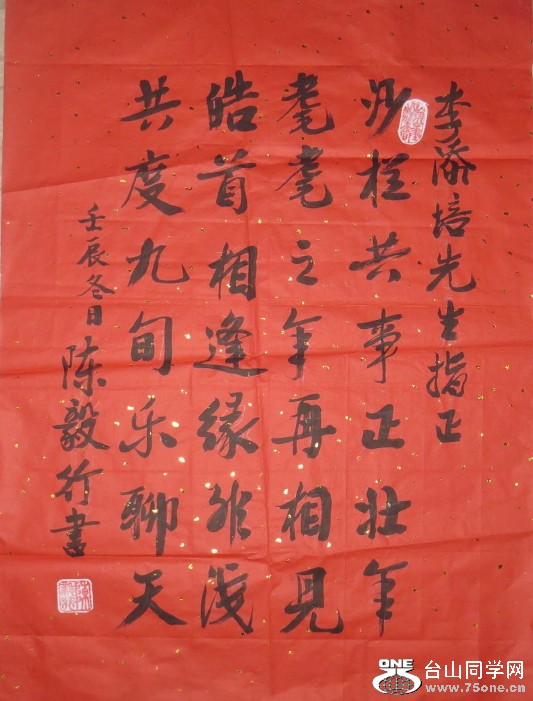 李添培先生指正
沙栏共事正壮年
耄耄之年再相见
皓首相逢缘非浅
共度九旬乐聊天
壬辰冬日 陈毅行書
ONE 台山同学网
www.75one.cn